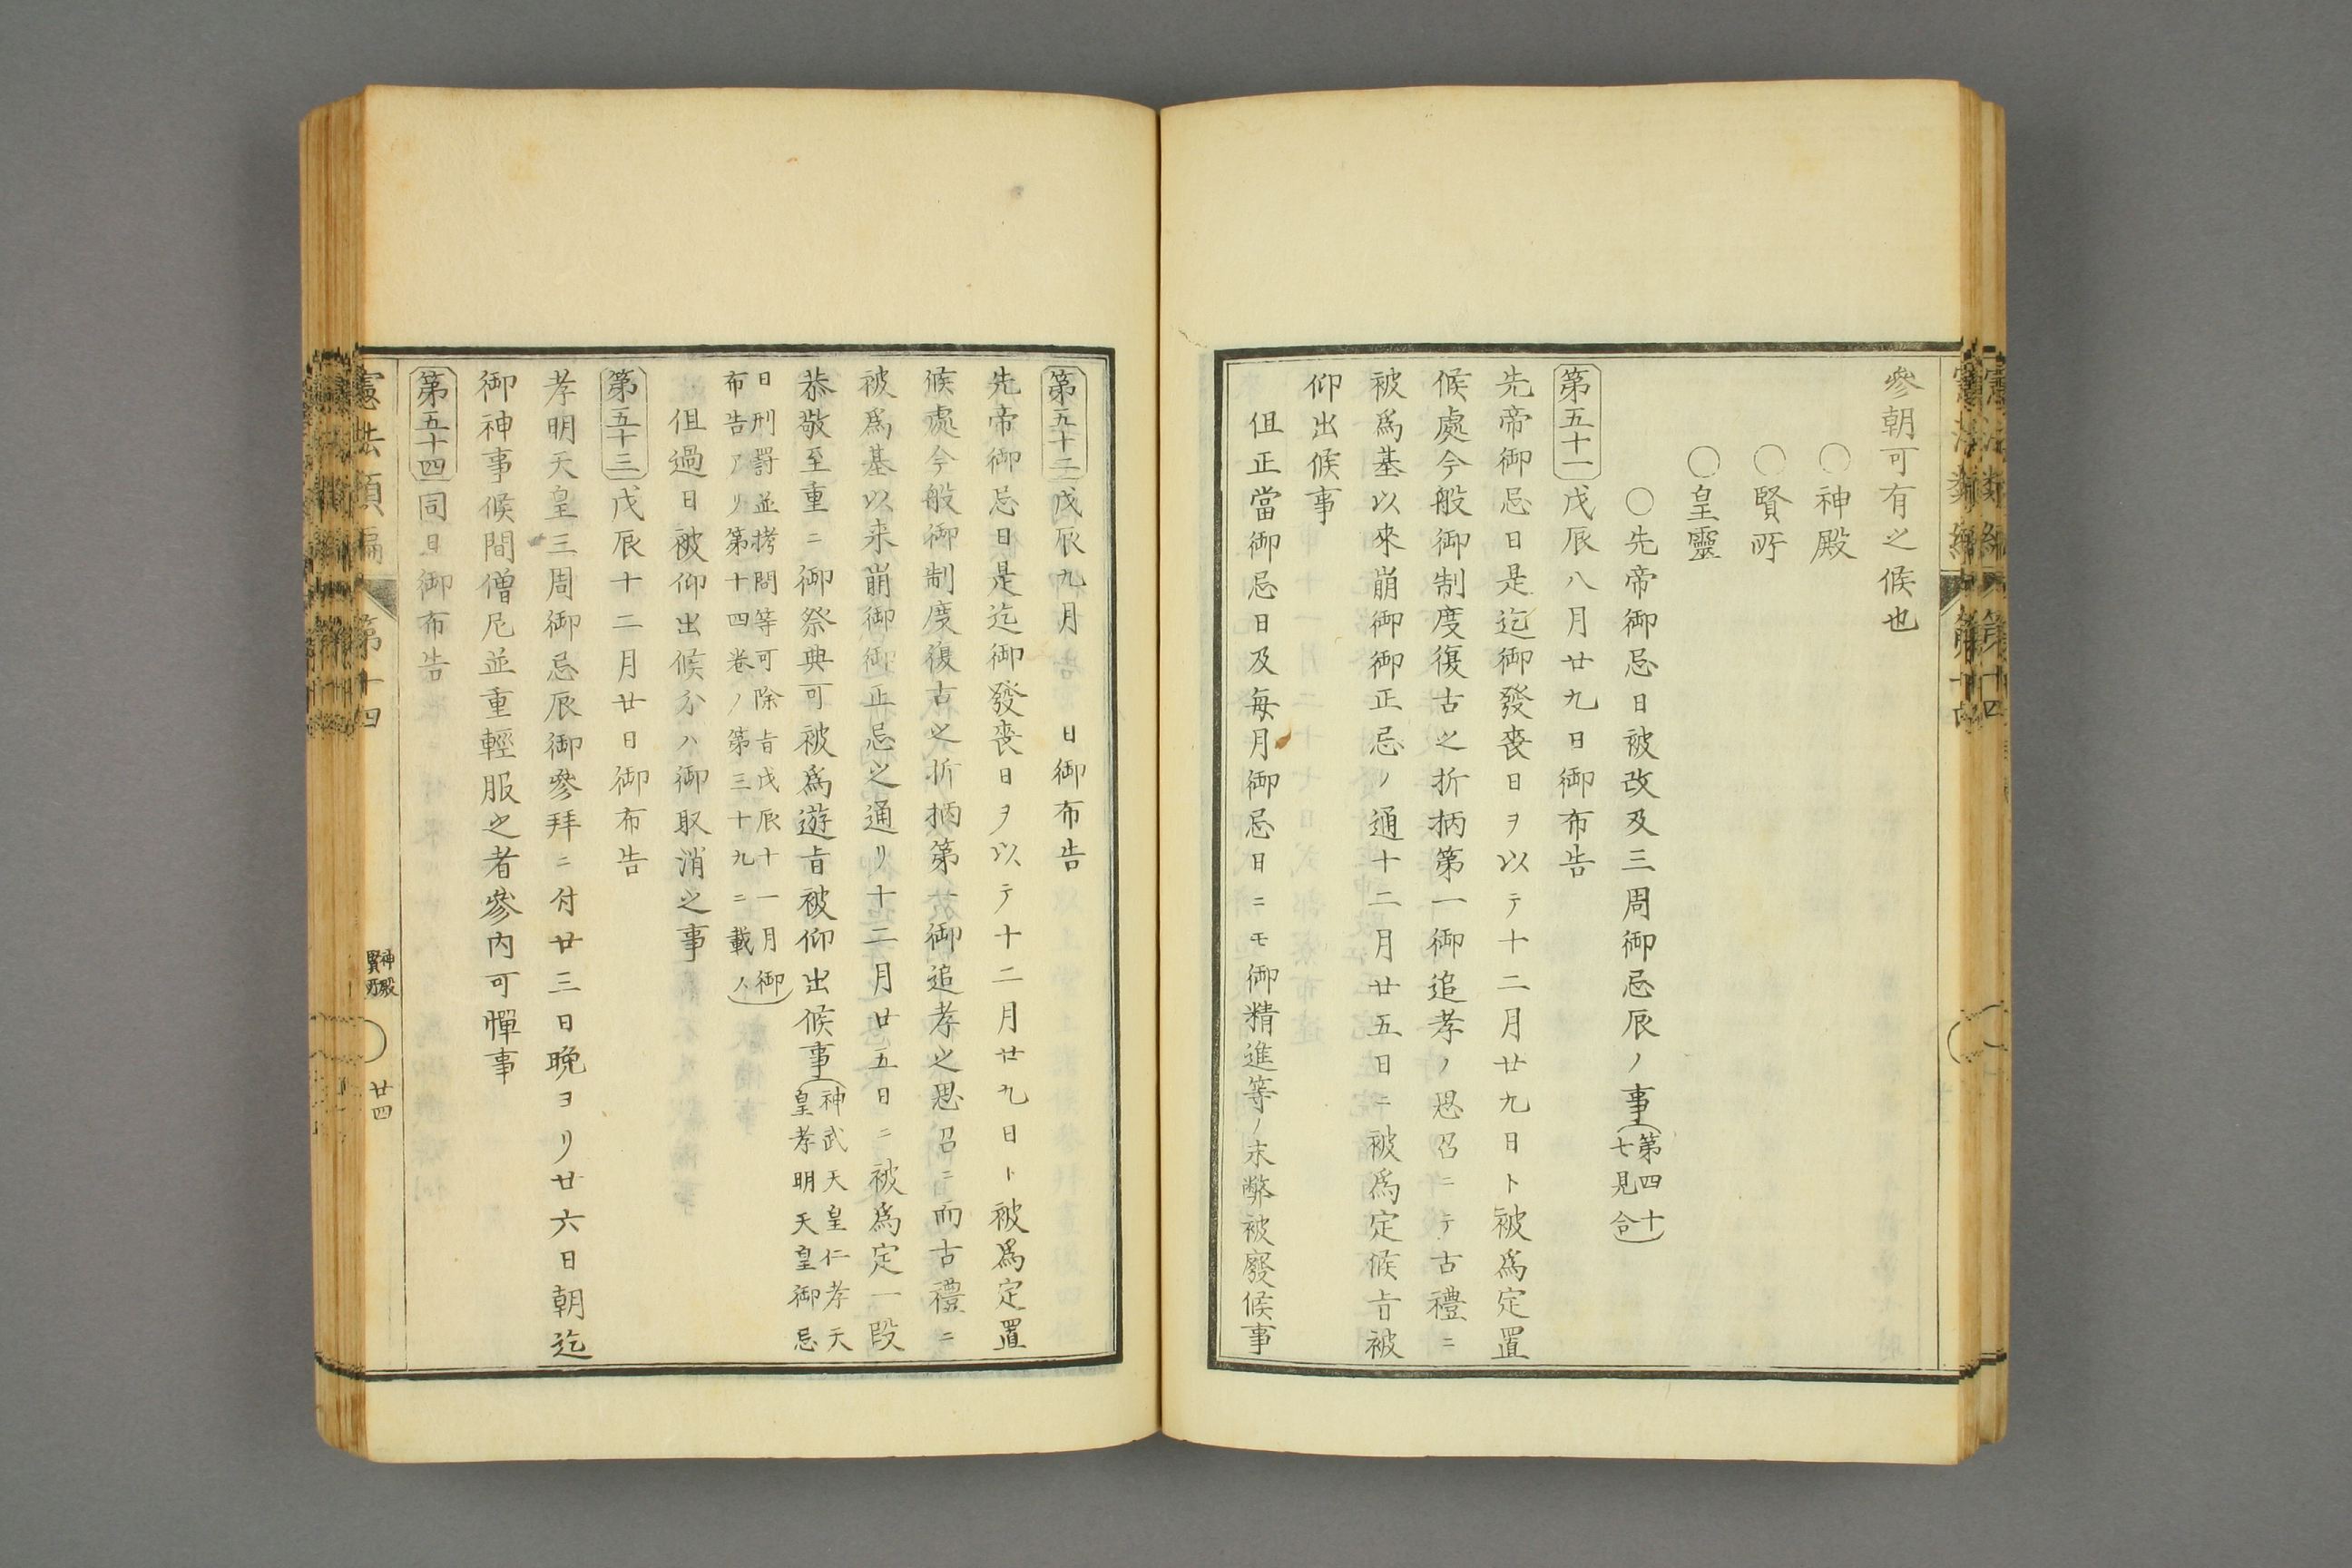 參朝可有之候也
○神殿
○賢所
○皇靈
○先帝御忌日被改及三周御忌辰ノ事(第四十七見合)
第五十一 戊辰八月廿九日御布告
先帝御忌日是迄御發喪日ヲ以テ十二月廿九日ト被爲定置
候處今般御制度復古之折柄第一御追孝ノ思召ニテ古禮ニ
被爲基以來崩御御正忌ノ通十二月廿五日ニ被爲定候旨被
仰出候事
但正當御忌日及每月御忌日ニモ御精進等ノ末弊被廢候事
第五十二 戊辰九月 日御布告
先帝御忌日是迄御發喪日ヲ以テ十二月廿九日ト被爲定置
候處今般御制度復古之折柄第一於御追孝之思召ニ而古禮ニ
被爲基以来崩御御正忌之通リ十二月廿五日ニ被爲定一段
恭敬至重ニ御祭典可被爲遊旨被仰出候事(神武天皇仁孝天
皇孝明天皇御忌
日刑罰並拷問等可除旨戊辰十一月御
布告アリ第十四卷ノ第三十九ニ載ス)
但過日被仰出候分ハ御取消之事
第五十三 戊辰十二月廿日御布告
孝明天皇三周御忌辰御參拜ニ付廿三日晩ヨリ廿六日朝迄
御神事候間僧尼並重輕服之者參内可憚事
第五十四 同日御布告
憲法類編 第十四
神殿
賢所
廿四